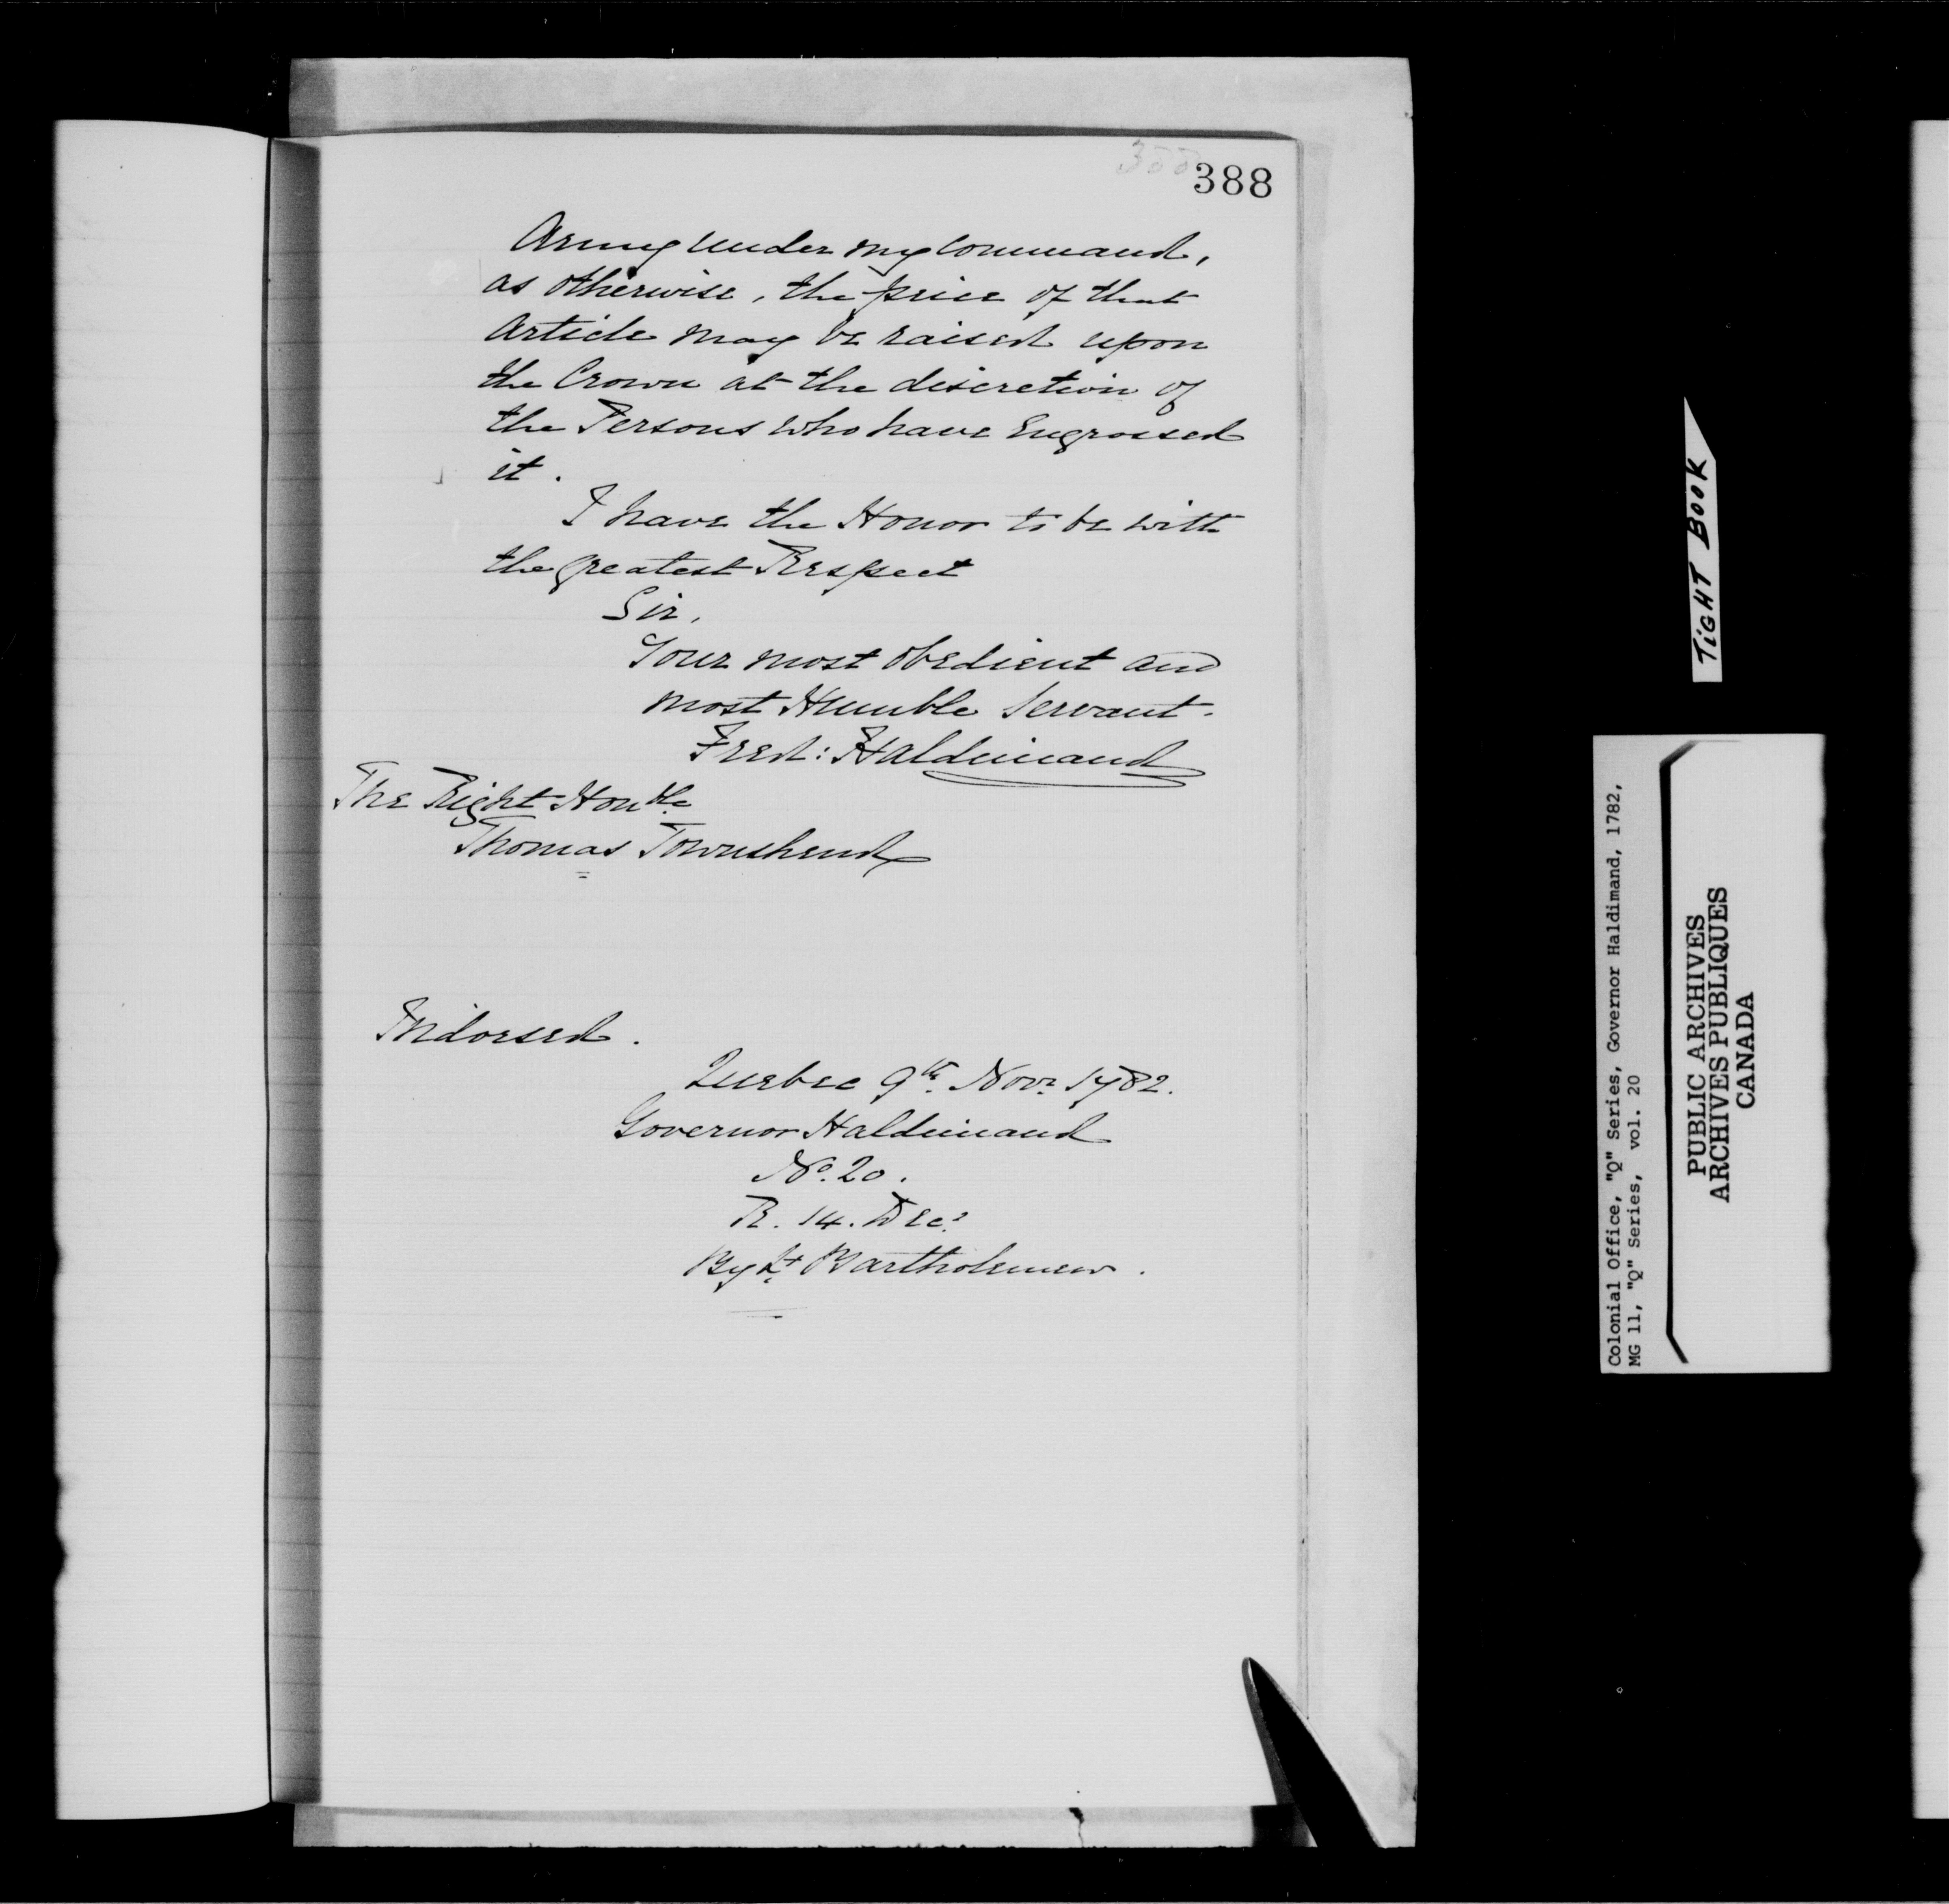 388
388
Army under my Command,
as otherwise, the price of that
Article may be raised upon
the Crown at the discretion of
the Persons who have Engrossed
it.
I have the Honor to be with
the greatest Respect
Sir,
Your most obedient and
most Humble Servant.
Fred: Haldimand
The Right Honble
Thomas Townshend
Indorsed.
Quebec 9th Novr 1782.
Governor Haldimand
No. 20.
R. 14. Decr
By Lt Bartholemew.
TiGHT BOOK
Colonial Office, "Q" Series, Governor Haldimand, 1782,
MG 11, "Q" Series, vol. 20
PUBLIC ARCHIVES
ARCHIVES PUBLIQUES
CANADA